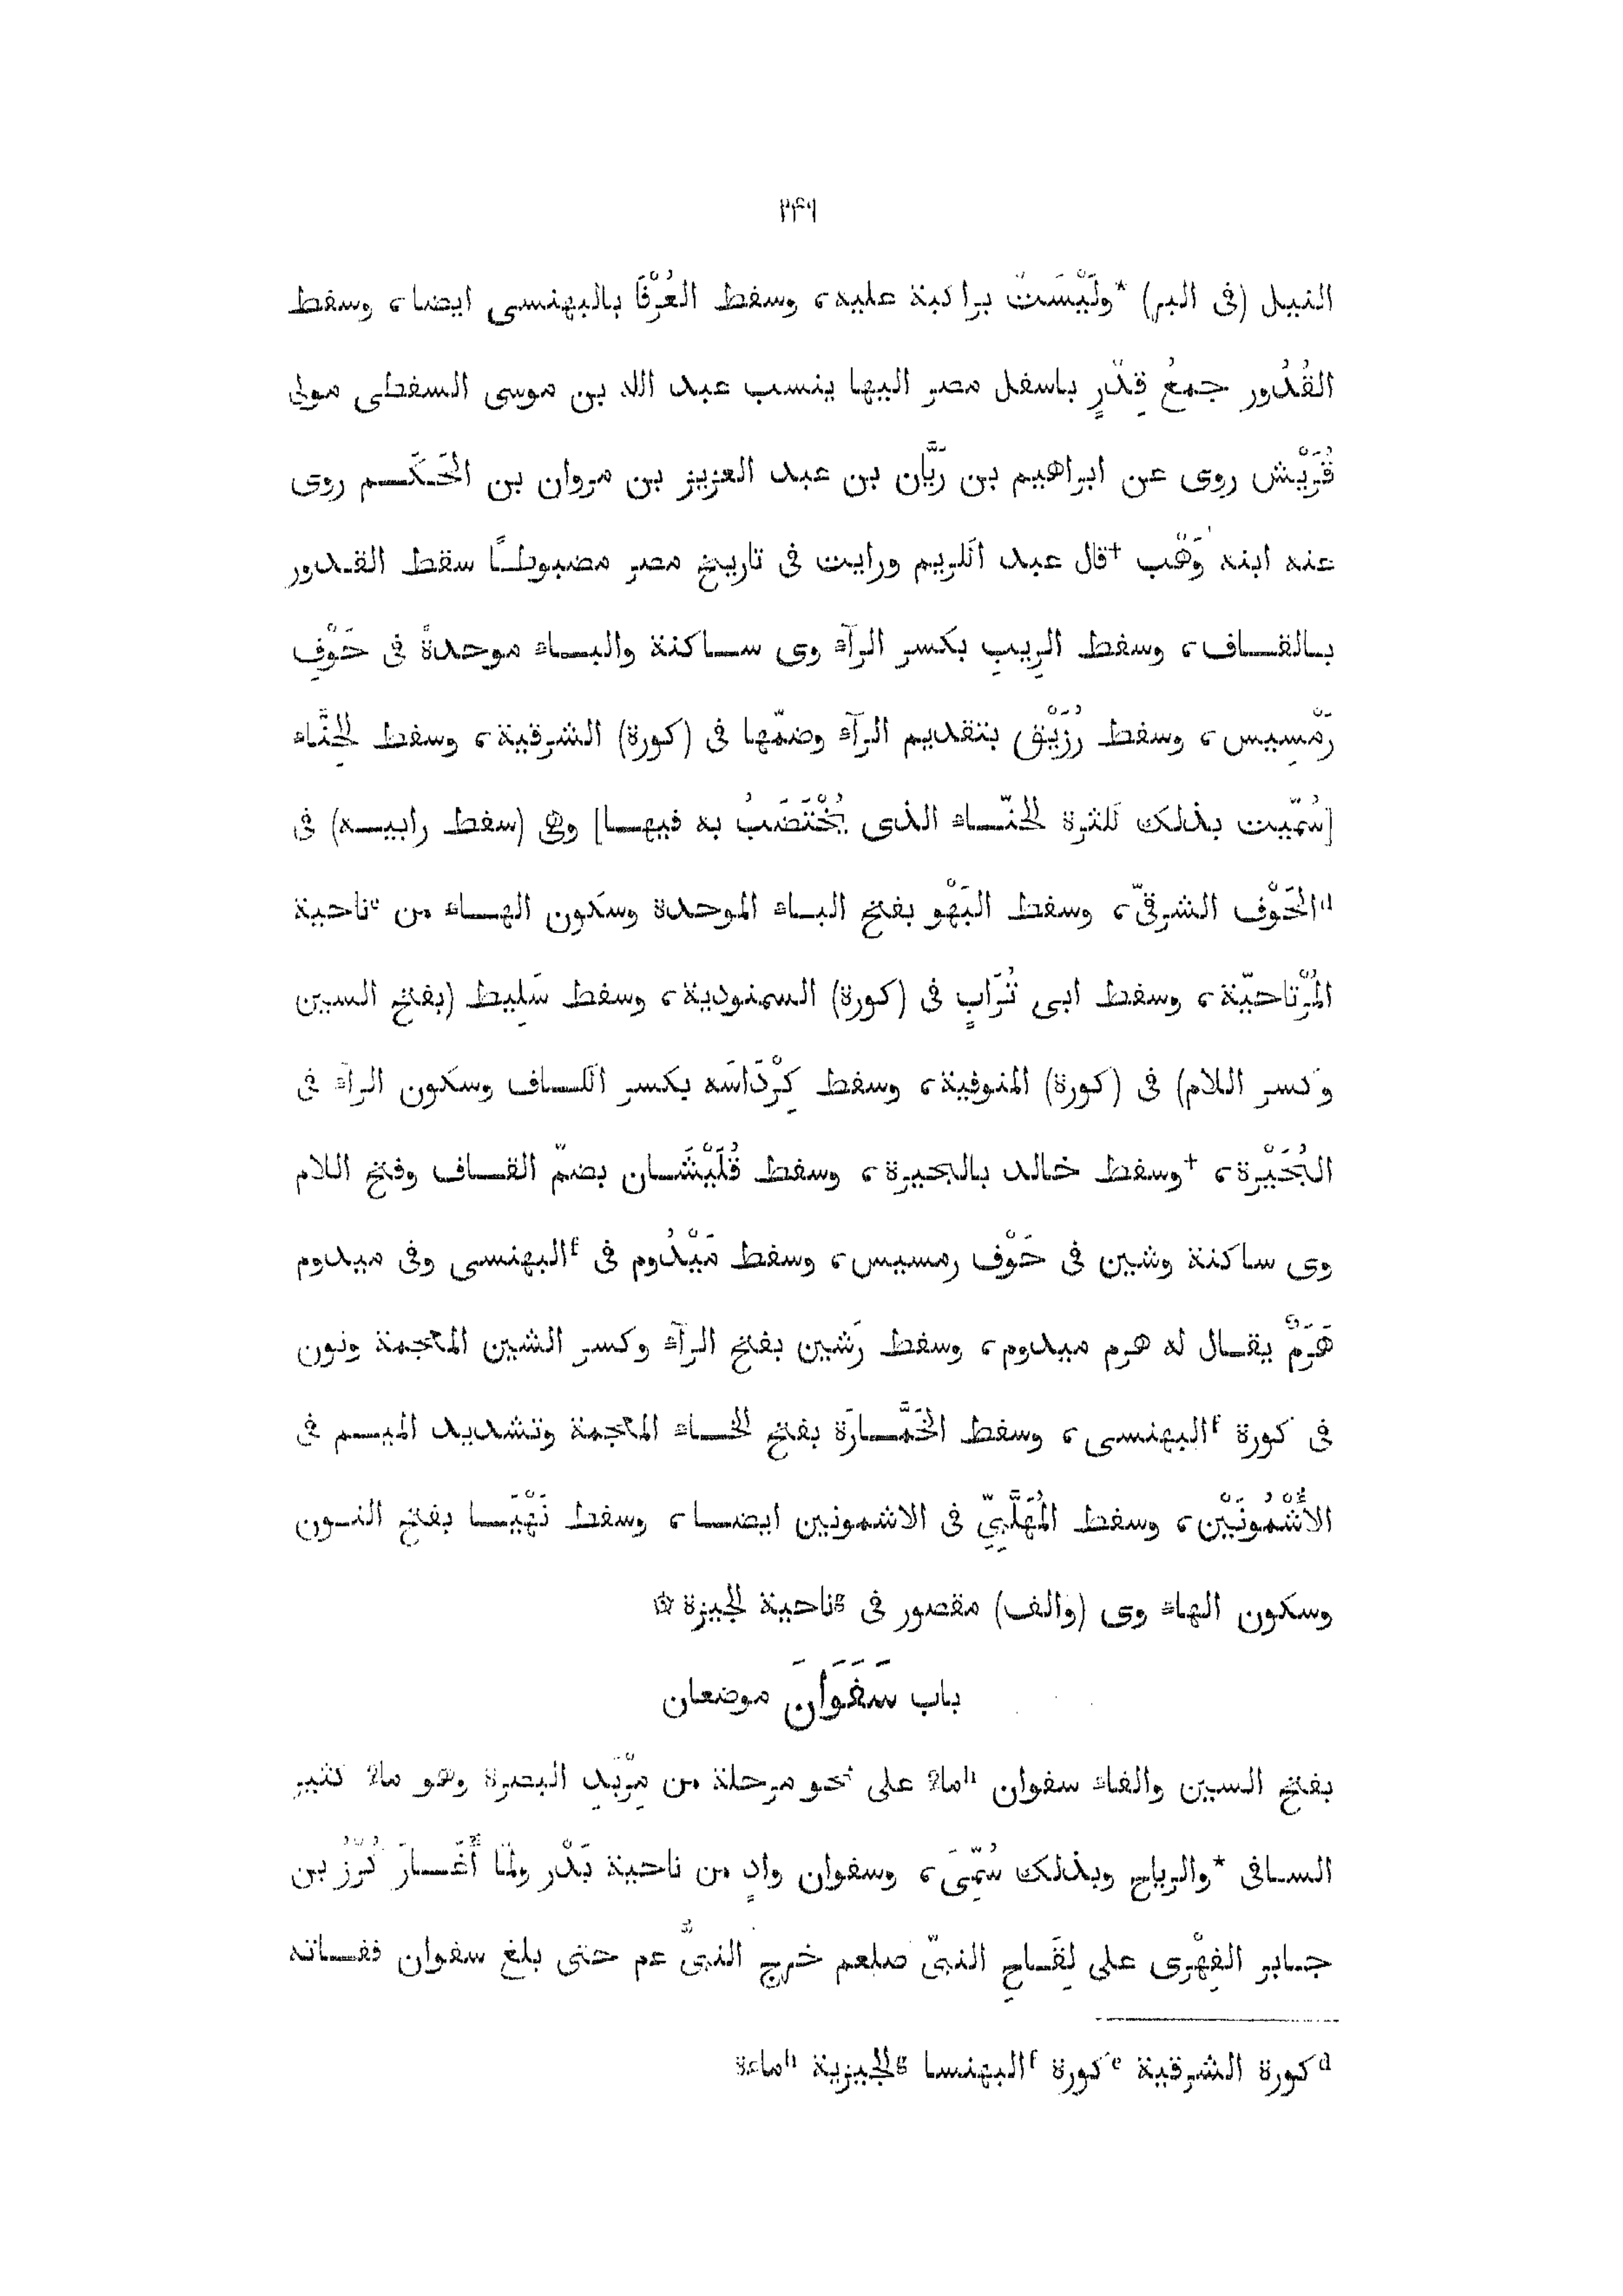 ٢٤٩
النيل (فى البر) *ولَيْسَتْ براكبة عليه، وسفط العُرْفَا بالبهنسى ايضا، وسفط
القُدُور جمعُ قِدْرٍ باسفل مصر اليها ينسب عبد الله بن موسى السفطى مولى
قُرَيْش روى عن ابراهيم بن رَيَّان بن عبد العزيز بن مروان بن الحَكَم روى
عنه ابنه وَهْب †قال عبد الكريم ورايت فى تاريخ مصر مضبوطًا سقط القدور
بالقاف، وسفط الرِيبِ بكسر الرآء وى ساكنة والباء موحدةً فى حَوْفِ
رَمْسِيس، وسفط رُزَيْق بتقديم الرآء وضمّها فى (كورة) الشرقية، وسفط الحِنَّاء
[سُمّيت بذلك لكثرة الحنّاء الذى يُخْتَضَبُ به فيها] وهى (سفط رابيه) فى
dالحَوْف الشرقىّ، وسفط البَهْو بفتح الباء الموحدة وسكون الهاء من eناحية
المُرْتاحيّة، وسفط ابى تُرَابٍ فى (كورة) السمنودية، وسفط سَلِيط (بفتح السين
وكسر اللام) فى (كورة) المنوفية، وسفط كِرْدَاسَه بكسر الكاف وسكون الرآء فى
البُحَيْرة، †وسفط خالد بالبحيرة، وسفط قُلَيْشَان بضمّ القاف وفتح اللام
وى ساكنة وشين فى حَوْف رمسيس، وسفط مَيْدُوم فى fالبهنسى وفى ميدوم
هَرَمٌ يقال له هرم ميدوم، وسفط رَشين بفتح الرآء وكسر الشين المعجمة ونون
فى كورة fالبهنسى، وسفط الخَمَّارَة بفتح الخاء المعجمة وتشديد الميم فى
الأُشْمُونَيْن، وسفط المُهَلَّبِيّ فى الاشمونين ايضا، وسفط نَهْيَا بفتح النون
وسكون الهاء وى (والف) مقصور فى gناحية الجيزة ☆
باب سَفَوَانَ موضعان
بفتح السين والفاء سفوان hماء على نحو مرحلة من مِرْبَدِ البصرة وهو ماء كثير
السافى *والرياح وبذلك سُمِّىَ، وسفوان وادٍ من ناحية بَدْر ولمّا أَغَارَ كُرْزُ بن
جابر الفِهْرى على لِقَاحِ النبىّ صلعم خرج النبىُّ عم حتى بلغ سفوان ففاته
dكورة الشرقية eكورة fالبهنسا gالجيزية hماءة